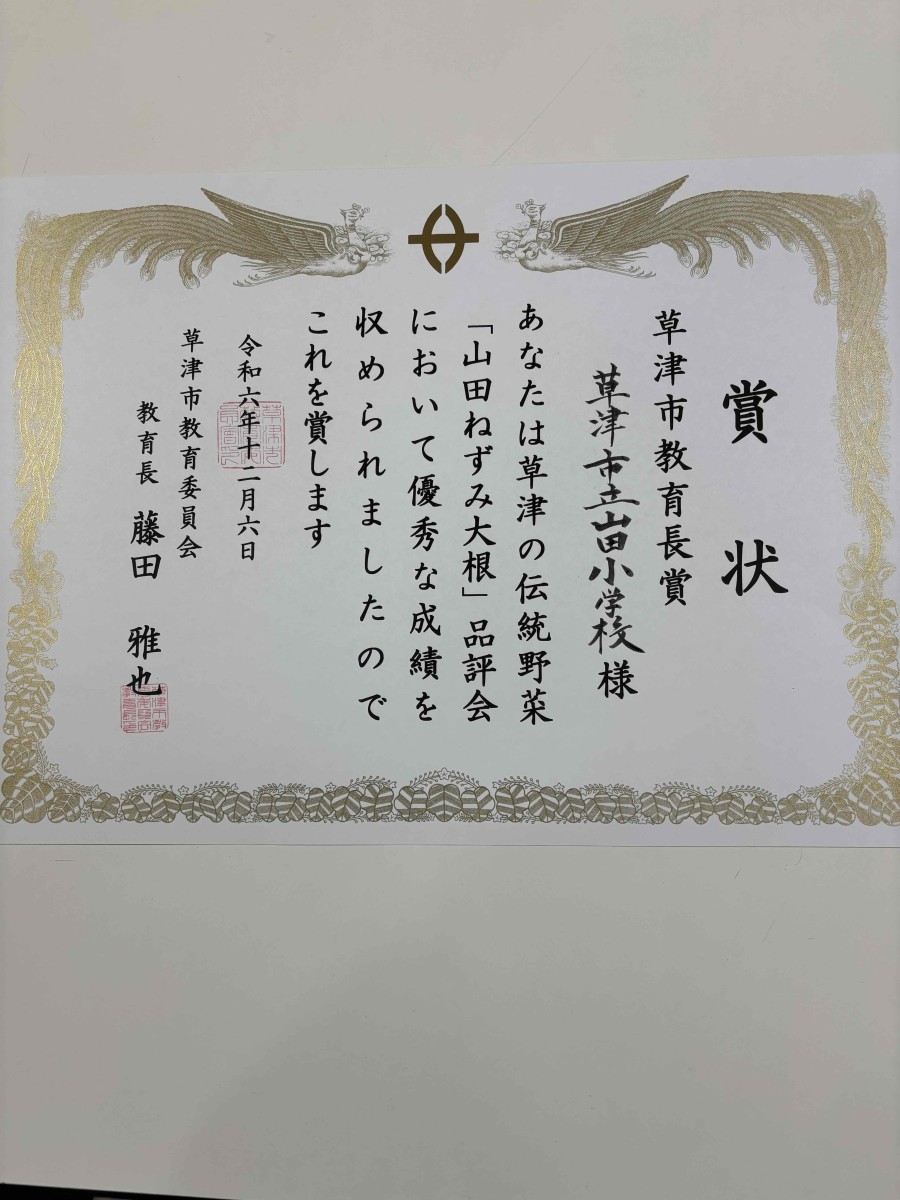 賞状
草津市教育長賞
草津市立山田小学校様
あなたは草津の伝統野菜
「山田ねずみ大根」品評会
において優秀な成績を
収められましたので
これを賞します
令和六年十二月六日
草津市教育委員会
教育長 藤田 雅也